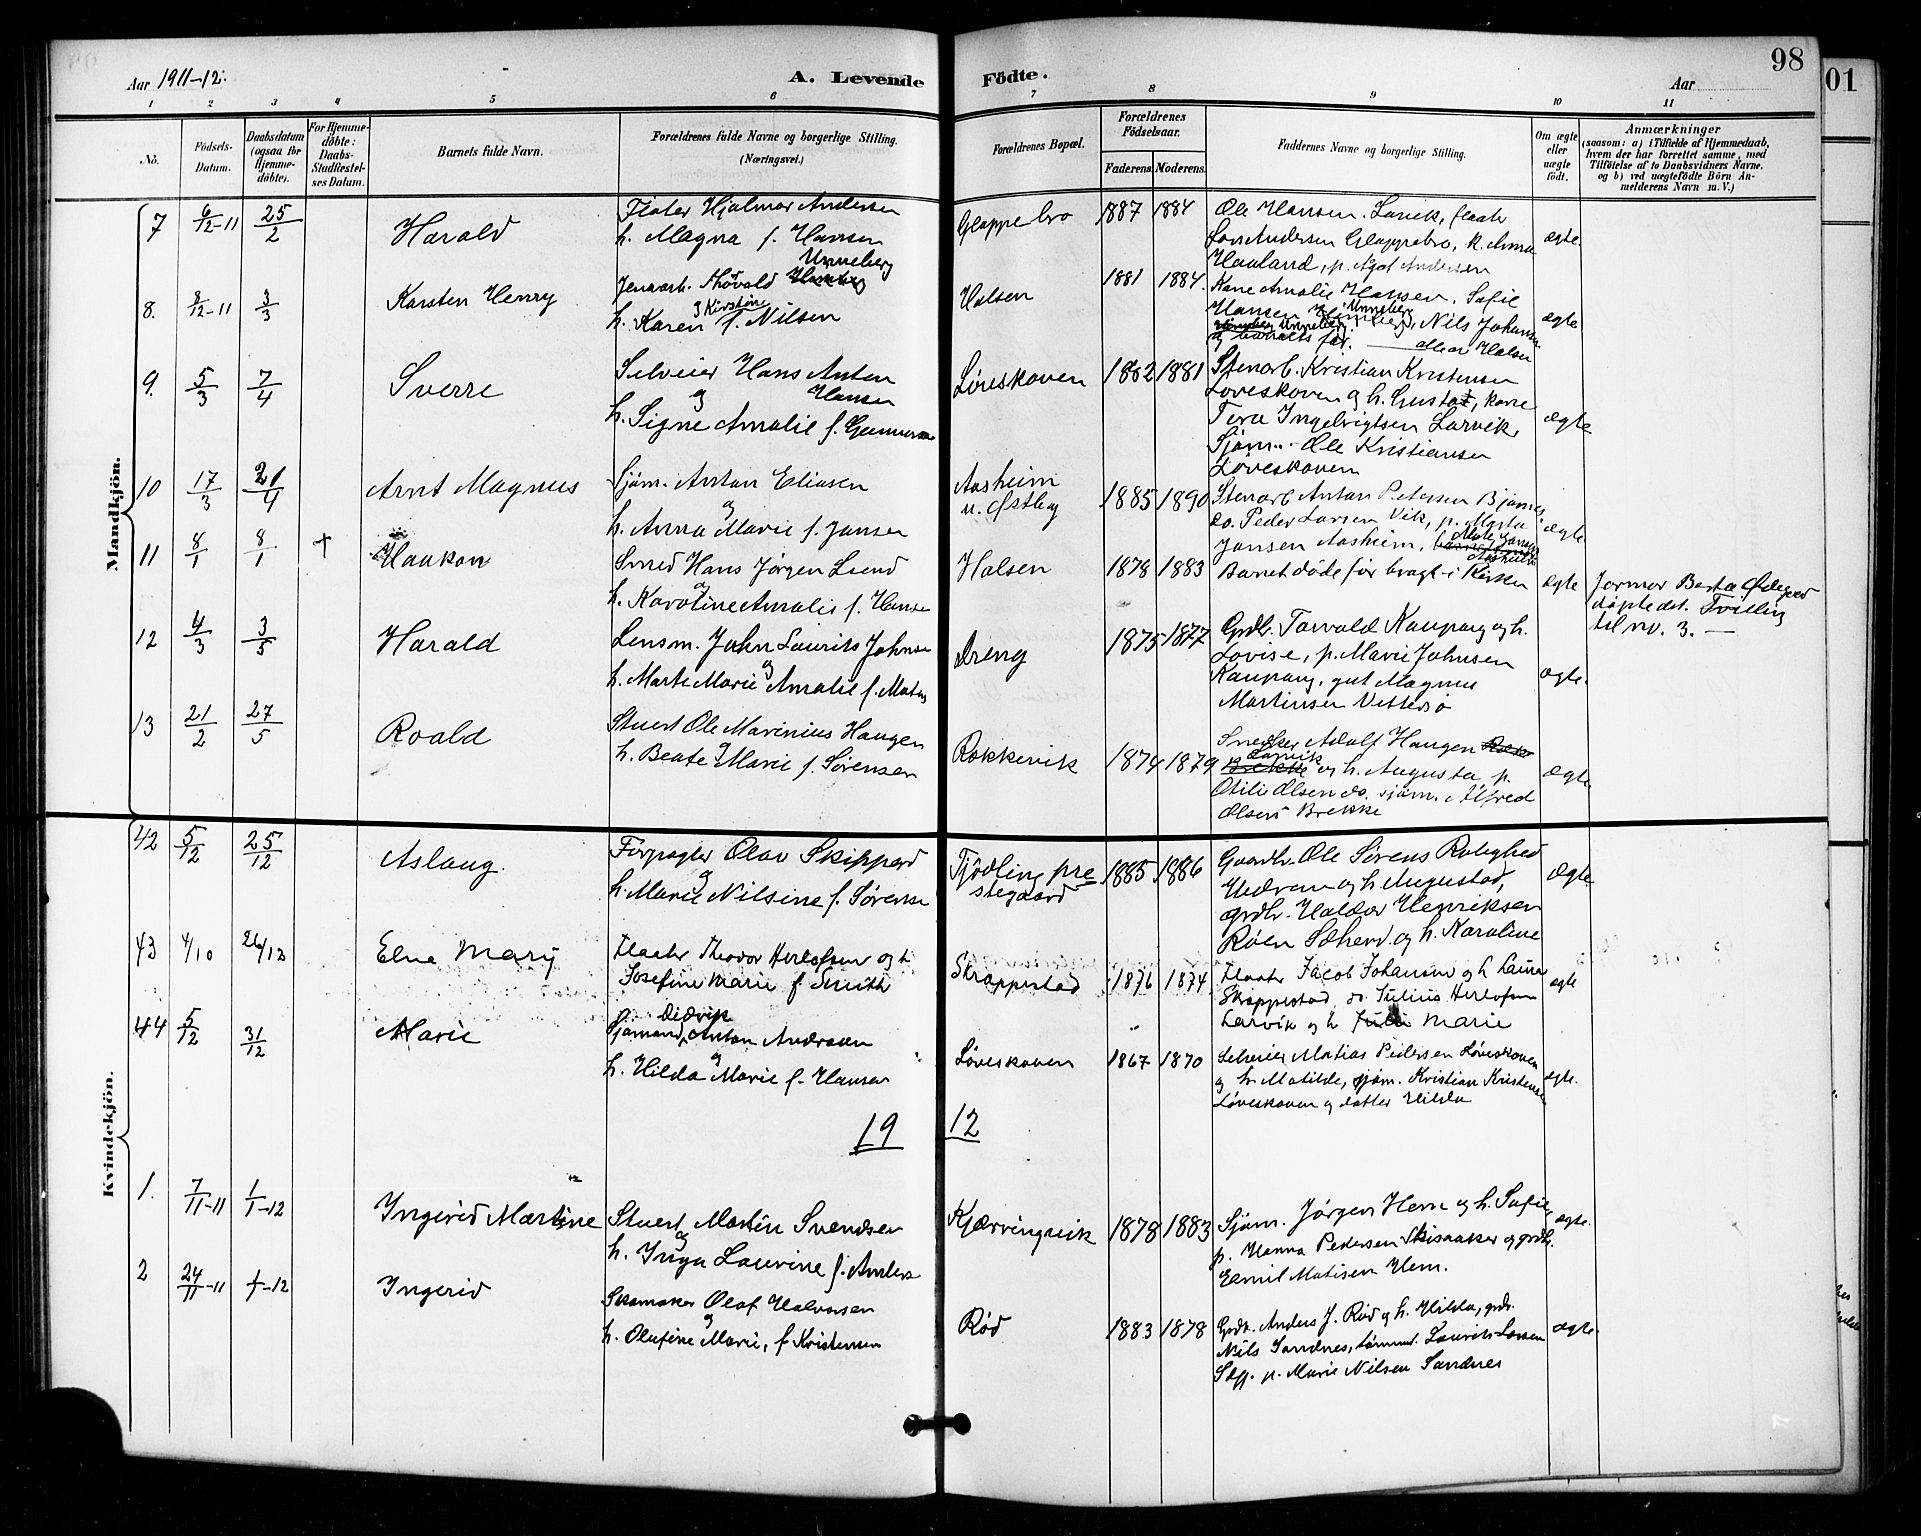 98
01
Aar 1911-12.
A. Levende Födte.
Aar
1 2 3 4 5 6 7 8 9 10 11
No.
Födsels-Datum.
Daabsdatum (ogsaa for Hjemme-döbte).
For Hjemme-döbte: Daabs-Stadfæstel-ses Datum.
Barnets fulde Navn.
Forældrenes fulde Navne og borgerlige Stilling.
(Næringsvei.)
Forældrenes Bopæl.
Forældrenes Födselsaar.
Faderens. Moderens.
Faddernes Navne og borgerlige Stilling.
Om ægte eller uægte födt.
Anmærkninger
(saasom: a) i Tilfælde af Hjemmedaab,
hvem der har forrettet samme, med
Tilföielse af to Daabsvidners Navne,
og b) ved uægtefödte Börn An-
melderens Navn m. V.)
Mandkjön.
7 6/12-11 25/2 Harald
Hjalmar Andersen
h. Magna f. Hansen
Gloppebro 1887 1884
Ole Hansen Larvik,
Andersen Gloppebro, k. Anna
Haaland, p. Andersen
ægte
8. 8/12-11 3/3 Karsten Henry
Jernarb. Thovald Unneberg
h. Karen Kirstine f. Nilsen
Halsen 1881 1884.
Kone Amalie Hansen, Sofie
Hansen Unneberg, Nils Johansen
og barnets far. alle av Halsen
ægte
9. 5/3 7/4 Sverre
Selveier Hans Anton Hansen
og
h. Signe Amalie f. Gunnersen
Løveskoven 1882 1881
Stenarb. Kristian Kristensen
Løveskoven og h. Gusta, kone
Tora Ingebrigtsen Larvik,
Sjøm. Ole Kristiansen
Løveskoven
ægte
10 17/3 21/4 Arnt Magnus
Sjøm. Anton Eliasen
og
h. Anna Marie f. Jansen
Aasheim
u. Østby
1885 1890
Stenarb Anton Petersen
do. Peder Larsen Vik, p. Marta
Jansen Aasheim,
ægte
11 8/1 8/1 † Haakon
Smed Hans Jørgen Lund
og
h. Karoline Amalie f. Hansen
Halsen 1878 1883
Barnet døde før bragt i Kirken
ægte
Jormor Berta Ødegaard
døpte det. Tvilling
til no. 3. —
12 4/3 3/5 Harald
Lensm. John Laurits Johnsen
og
h. Marte Marie Amalie f.
Østeng 1875 1877
Grdbr. Torvald Kaupang og h.
Lovise, p. Marie Johnsen
Kaupang, gut Magnus
Martinsen Vittersø
ægte.
13 21/2 27/5 Roald
Stuert Ole Marinius Haugen
og
h. Beate Marie f. Sørensen
Rakkevik 1874 1879
Snedker Adolf Haugen
Larvik og h. Augusta p.
Otilie Olsen do. sjøm. Alfred
Olsen Brekke
ægte
Kvindekjön.
42 5/12 25/12 Aslaug.
Forpagter Olav Skipperd
og
h. Marie Nilsine f. Sørensen
Tjødling pre
stegaard
1885 1886
Gaardbr. Ole Sørens Rolighed
Undrum og h Augusta,
grdbr. Haldor Henriksen
Røen Sætherd. og h. Karoline
ægte
43 4/10 26/12 Elna Mary
Flaater Theodor Herlofsen og h
Josefine Marie f Smith
Skrappestad 1876 1874
Flaater Jacob Johansen og h Laura
Skrappestad, do. Julius Herlofsen
Larvik og h Marie
ægte
44 5/12 31/12 Marie
Didrik
Sjømand Anton Andersen
og
h. Hilda Marie f. Hansen
Løveskoven 1867 1870
Selveier Matias Pedersen Løveskoven
og h. Matilde, sjøm. Kristian Kristensen
Løveskoven og datter Hilda
ægte.
19 12
1. 7/11-11 1/1-12 Ingerid Martine
Stuert Martin Svendsen
og
h. Inga Laurine f. Anders
Kjærringvik 1878 1883
Sjøm. Jørgen Hem og h. Sofie,
p. Hanna Pedersen Skisaaker og grdbr.
Emil Matisen Hem.
ægte.
2 24/11-11 1/1-12 Ingerid
Skomaker Olaf Halvorsen
og
h. Olufine Marie, f Kristensen
Rød 1883 1878
Grdbr. Anders J. Rød og h. Hilda, grdbr.
Nils Sandnes, tømmerm. Laurits Larsen
p. Marie Nilsen Sandnes
ægte.